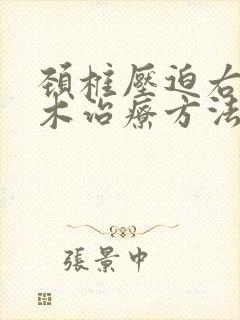 頚椎壓迫右
木治療方法
張景中